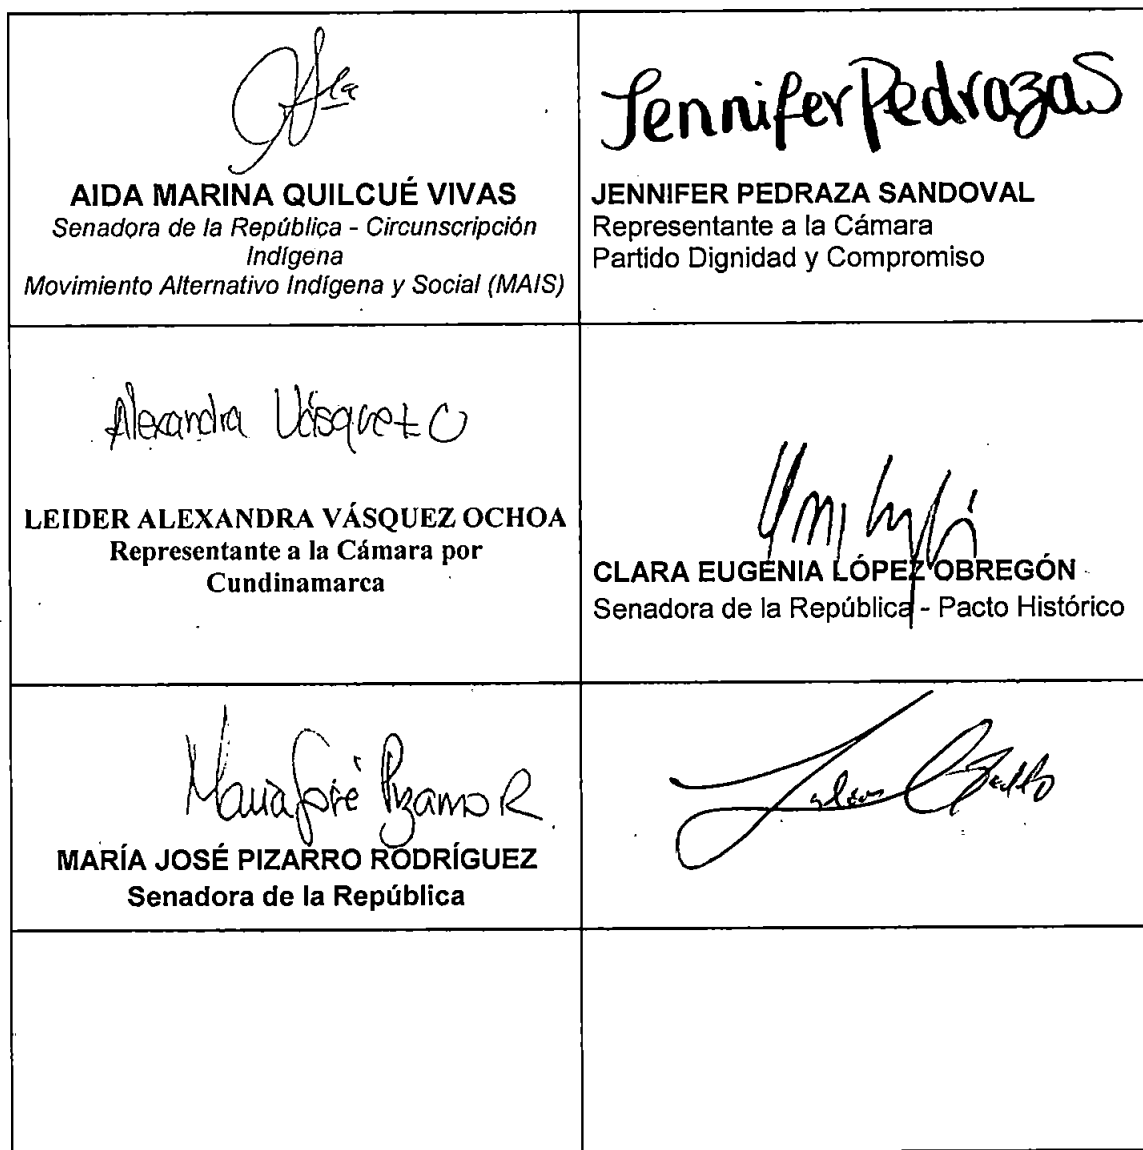 AIDA MARINA QUILCUÉ VIVAS
Senadora de la República - Circunscripción
Indígena
Movimiento Alternativo Indígena y Social (MAIS)
Jennifer Pedraza S
JENNIFER PEDRAZA SANDOVAL
Representante a la Cámara
Partido Dignidad y Compromiso
Alexandra Vásquez O
LEIDER ALEXANDRA VÁSQUEZ OCHOA
Representante a la Cámara por
Cundinamarca
CLARA EUGENIA LÓPEZ OBREGÓN
Senadora de la República - Pacto Histórico
María José Pizarro R
MARÍA JOSÉ PIZARRO RODRÍGUEZ
Senadora de la República